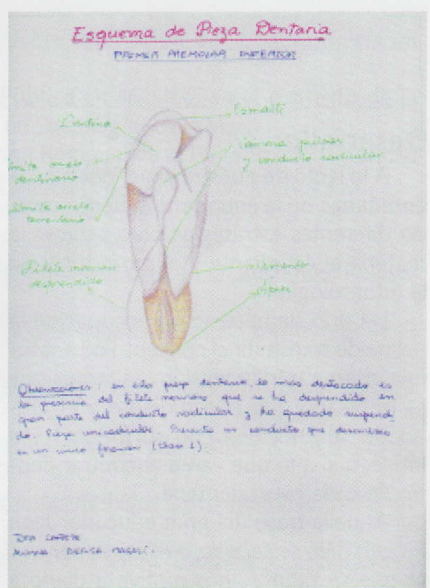 Esquema de Pieza Dentaria
PRIMER PREMOLAR INFERIOR
Esmalte
Dentina
Cámara pulpar
y conducto radicular
Límite amelo
dentinario
Límite amelo
cementario
Filete nervioso
desprendido
Cemento
Ápice
Observaciones: en esta pieza dentaria lo más destacado es
la presencia del filete nervioso que se ha desprendido en
gran parte del conducto radicular y ha quedado suspendi
do. Pieza uniradicular. Presenta un conducto que desemboca
en un único foramen (Clase I).